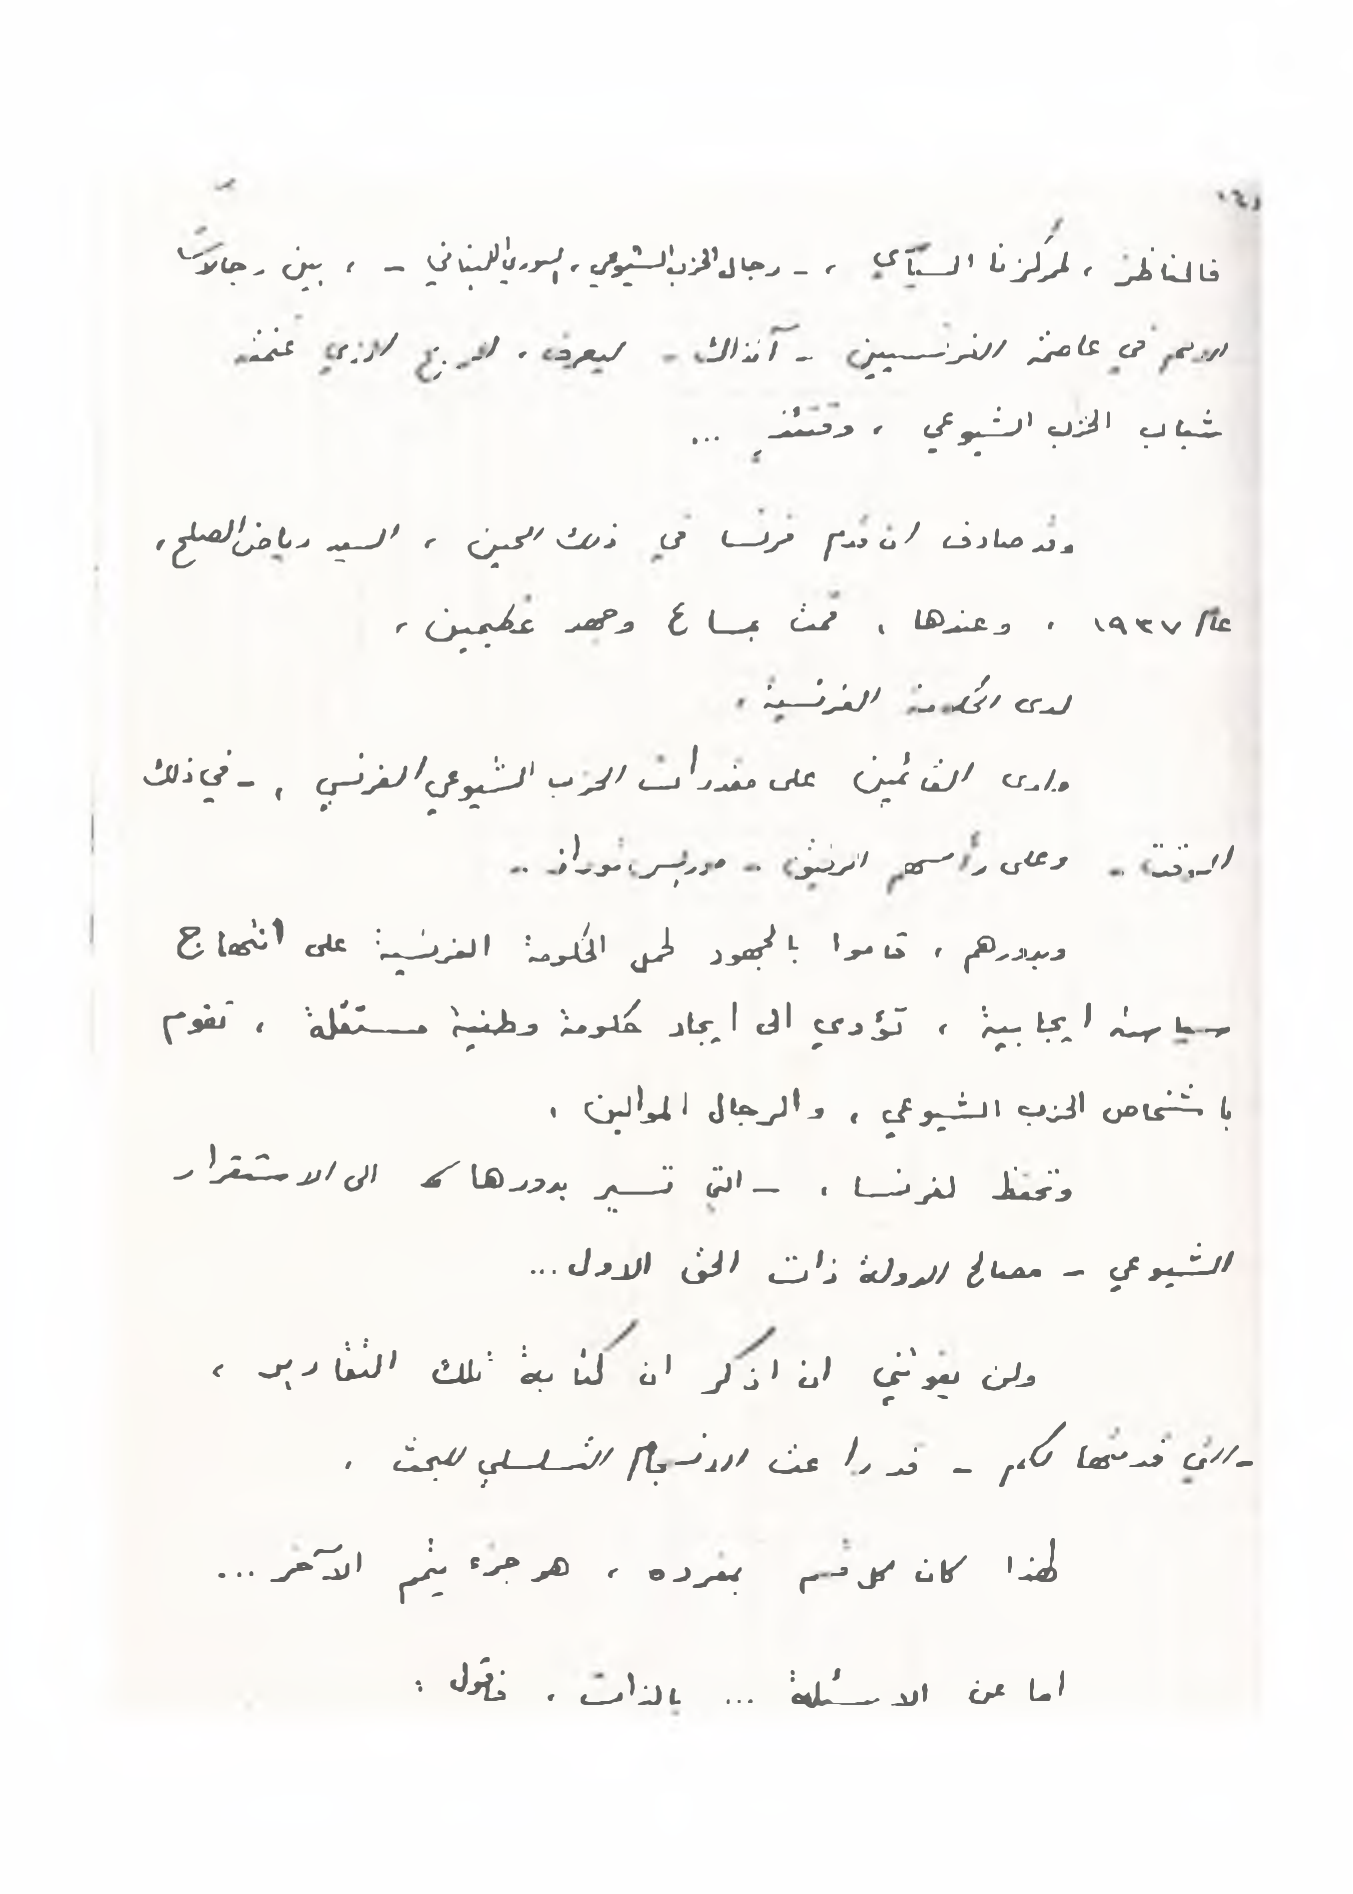 فالناظر ، لمركزنا السيآسي ، - رجال الحزب الشيوعي ، السوري اللبناني - ، بين رجالات
في عاصمة الفرنسيين - آنذاك - ليعرف ، الذي غنمه
شباب الحزب الشيوعي ، وقتئذٍ ...
وقد صادف ان قدم فرنسا في ذلك الحين ، السيد رياض الصلح ،
عام ١٩٣٧ ، وعندها ، قمت بمساع وجهد عظيمين ،
لدى الحكومة الفرنسية ،
ولدى القائمين على مقدرات الحزب الشيوعي الفرنسي ، - في ذلك
الوقت - وعلى رأسهم الرفيق - موريس توراز -
وبدورهم ، قاموا بالجهود لحمل الحكومة الفرنسية على انتهاج
سياسة ايجابية ، تؤدي الى ايجاد حكومة وطنية مستقلة ، تقوم
باشخاص الحزب الشيوعي ، والرجال الموالين ،
وتحفظ لفرنسا ، - التي تسير بدورها الى الاستقرار
الشيوعي - مصالح الدولة ذات الحق الاول ...
ولن يفوتني ان اذكر ان كتابة تلك التقارير ،
- التي قدمتها لكم - قد راعت الانسجام التسلسلي للبحث ،
لهذا كان كل قسم بمفرده ، هو جزء يتمم الآخر ...
اما عن الاسئلة ... بالذات ، فاقول :